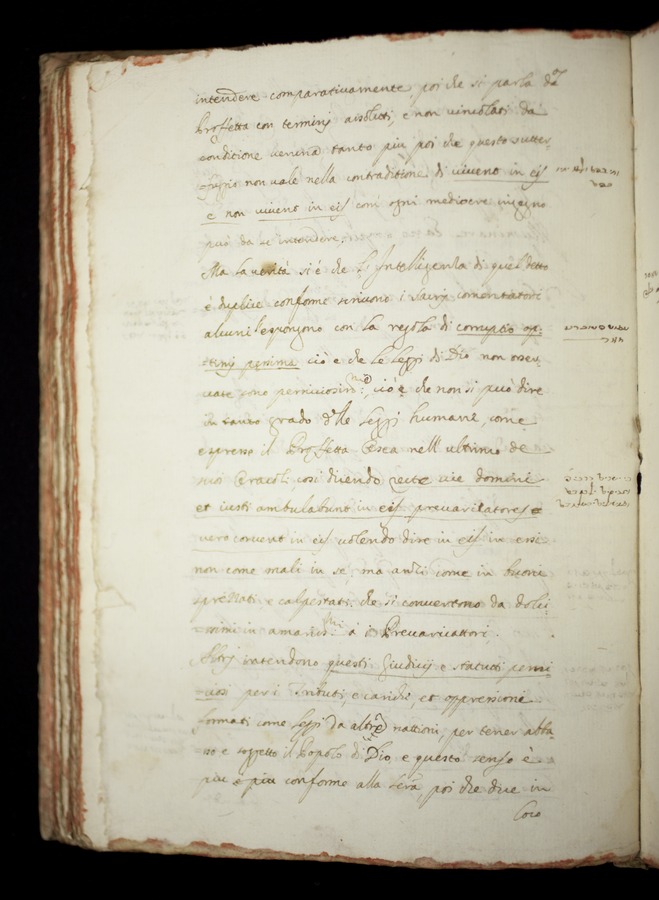 intendere comparativamente, poi che si parla dal
Proffetta con terminj assoluti, e non vincolati da
conditione veruna tanto più poi che questo sutter-
fuggio non vale nella contraditione di vivent in eis
e non vivent in eis com' ogni mediocre ingegno
può da se intendere.
Ma la verità si è che l'Intelligenza di quel detto
è duplice conforme scrivono i savij comentatori
alcuni l'espongono con la regola di corruptio op-
timi pessima ciò è che le leggi di Dio non osser-
vate sono perniciosissime, ciò è che non si può dire
in tanto grado d'lle leggi humane, come
espresse il Proffetta Osea nell'ultimo de
suoi Oracoli così dicendo recte vie domini
et iusti ambulabunt in eis prevaricatores
vero corruent in eis volendo dire in eis in esse
non come mali in se, ma anzi come in buoni
sprezzati e calpestati, che si convertono da dolci-
ssimi in amarissimi à i Prevaricattori.
Altrj intendono questi Giudicij e statutti perni-
ciosi per i Tributi, e carichi, et oppressione
formati come leggi da altre nattioni, per tener abba-
sso e soggetto il Popolo di Dio, e questo senso è
più e più conforme alla lettera, poi che dice in
loco